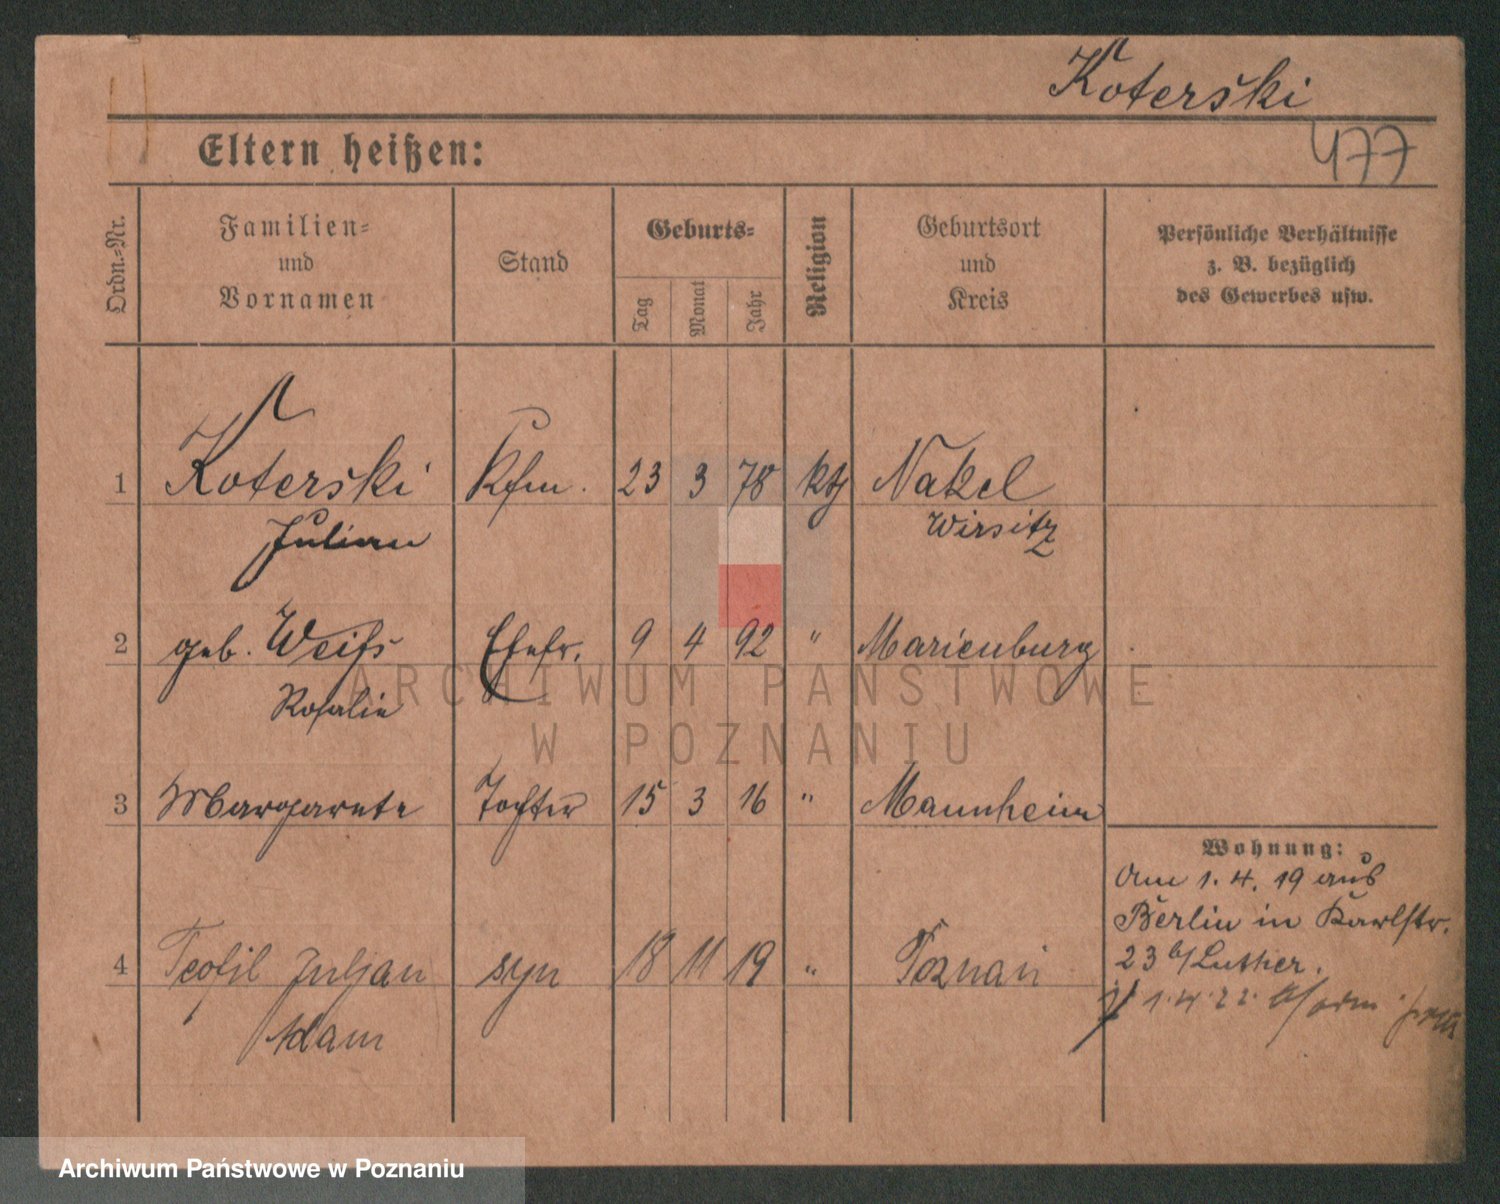 Koterski
477
Eltern heißen:
Ordn.-Nr.
Familien-
und
Vornamen
Stand
Geburts-
Tag
Monat
Jahr
Religion
Geburtsort
und
Kreis
Persönliche Verhältnisse
z. B. bezüglich
des Gewerbes usw.
1 Koterski Kfm. 23 3 78 kth Nakel
Julian Wirsitz
2 geb. Weiss Ehefr. 9 4 92 " Marienburg
Rosalie
3 Margarete Tochter 15 3 16 " Mannheim
Wohnung:
Am 1. 4. 19 aus
Berlin in Karlstr.
23 b/Luther.
4 Teofil Juljan syn 18 11 19 " Poznań
Adam
1.4.22
ARCHIWUM PAŃSTWOWE
W POZNANIU
Archiwum Państwowe w Poznaniu